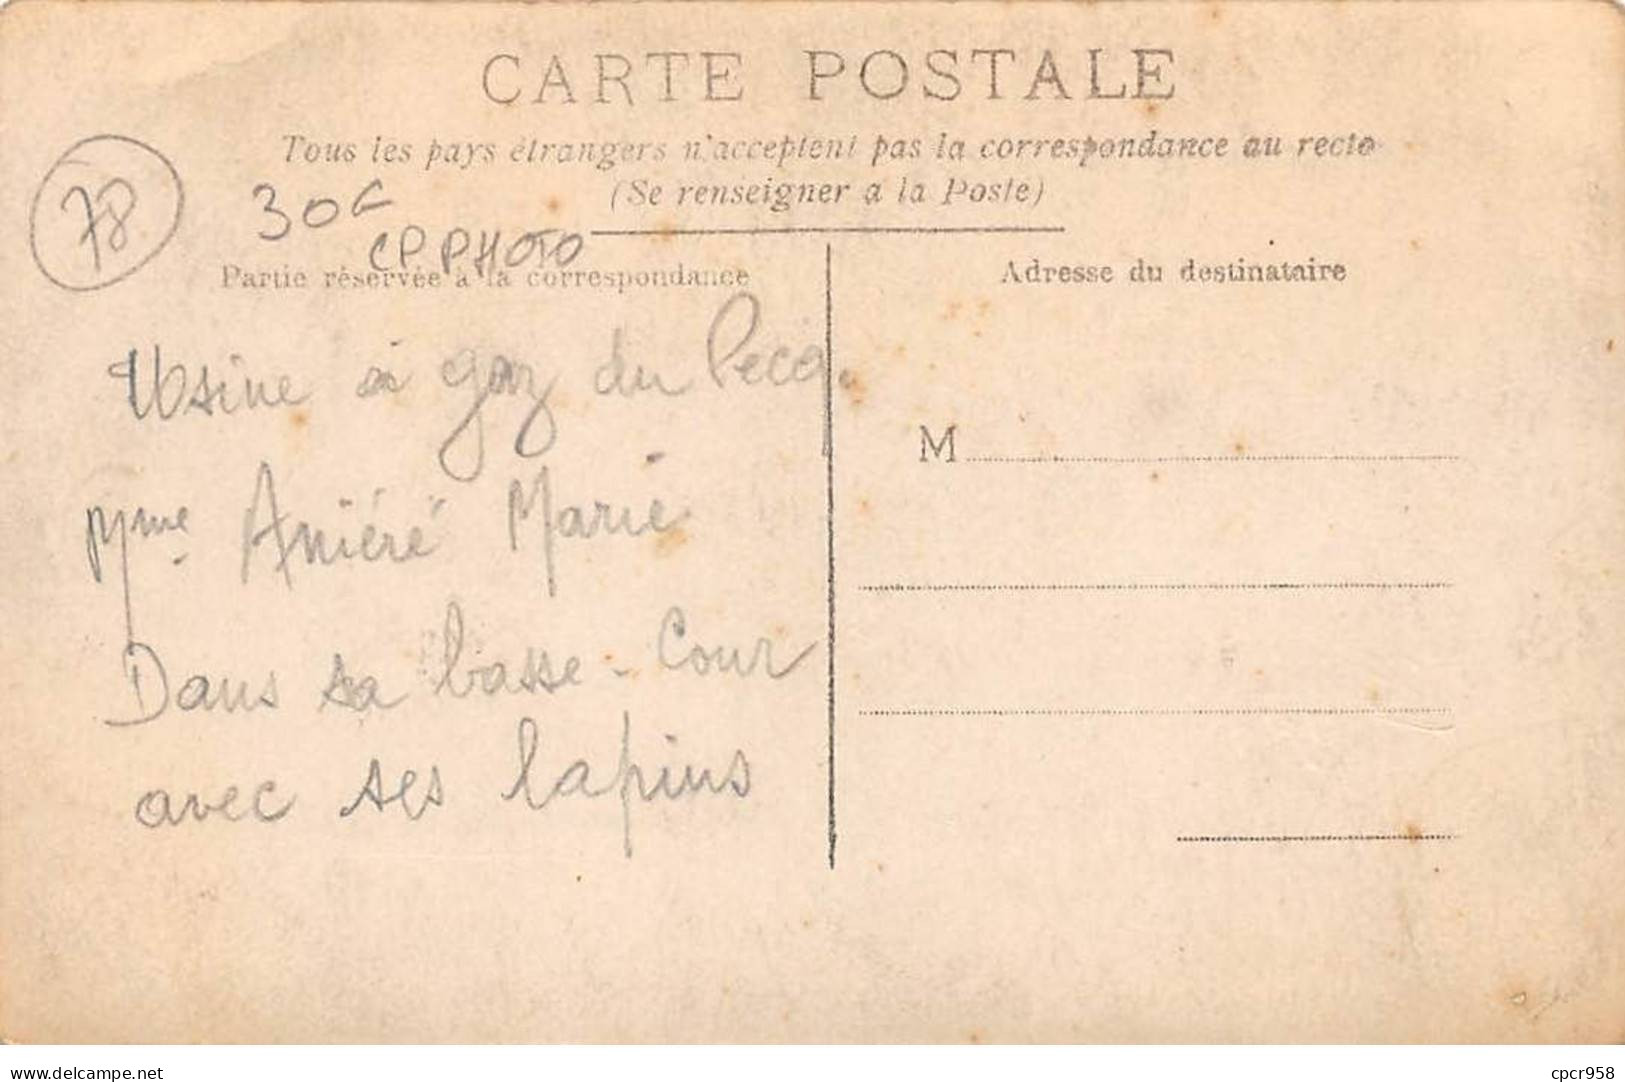 CARTE POSTALE
Tous les pays étrangers n'acceptent pas la correspondance au recto
(Se renseigner à la Poste)
78
30€
CP PHOTO
Partie réservée à la correspondance
Adresse du destinataire
Usine à gaz du Pecq.
Mme Aniéré Marie
Dans sa basse-Cour
avec ses lapins
M
delcampe.net
cpcr958